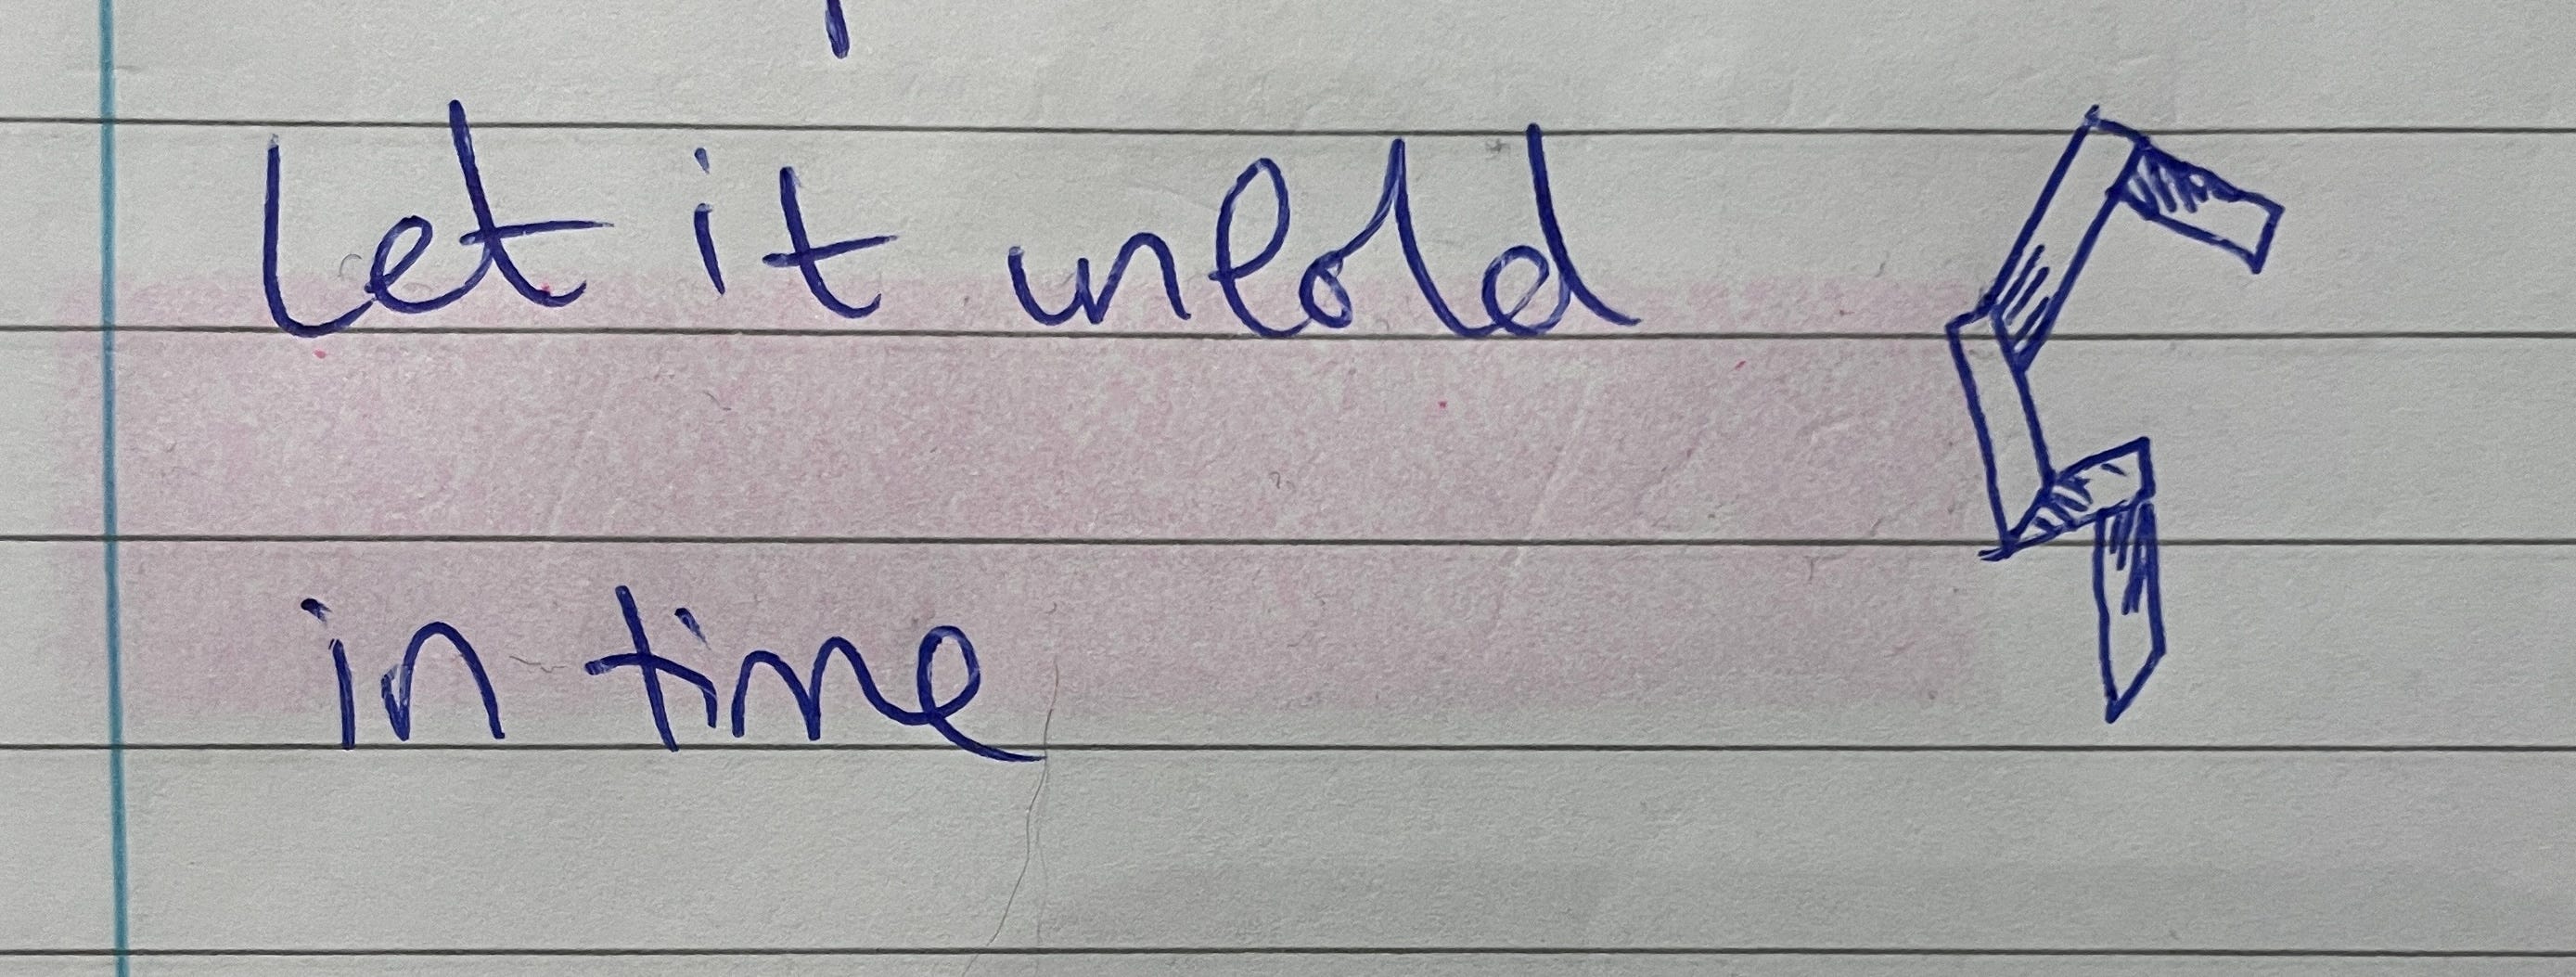 Let it unfold
in time